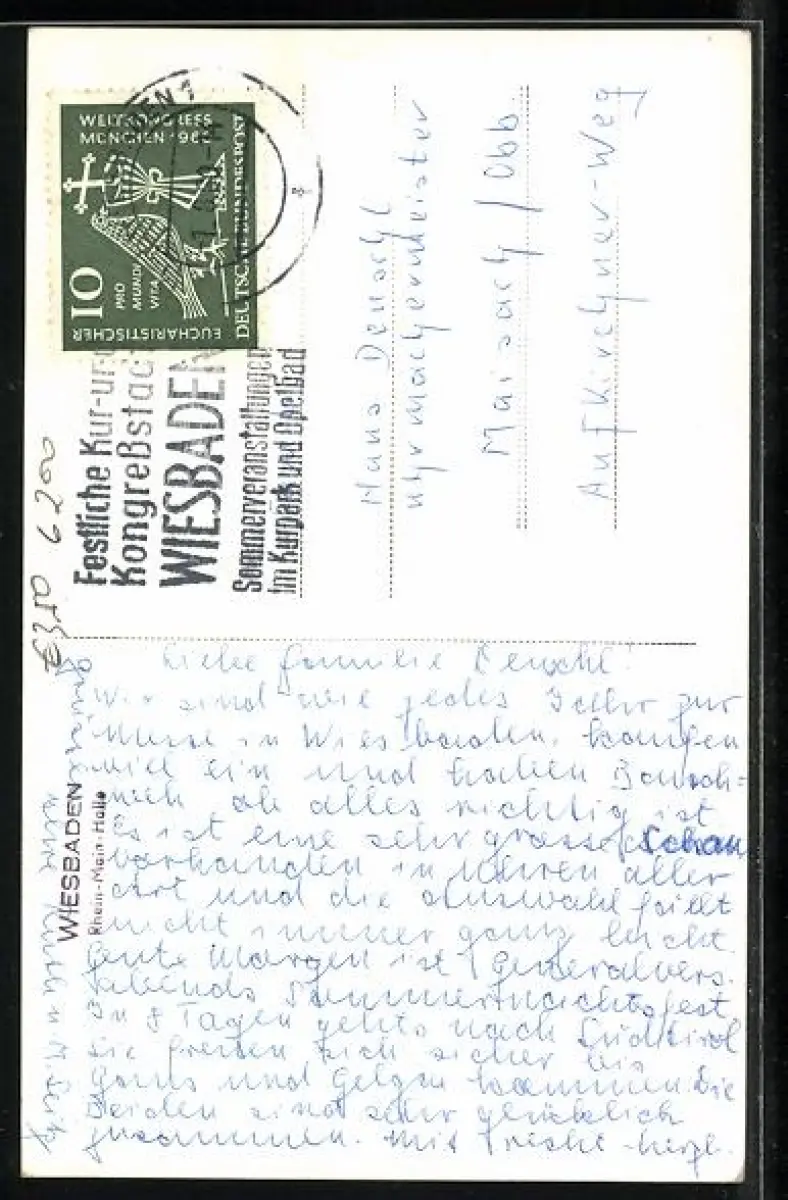 WELTKONGRESS
MÜNCHEN · 1960
10
PRO
MUNDI
VITA
EUCHARISTISCHER
DEUTSCHE BUNDESPOST
Festliche Kur- und
Kongreßstadt
WIESBADEN
Sommerveranstaltungen
im Kurpark und Opelbad
6200
Hans Deuschl
Uhrmachermeister
Maisach / Obb
Aufkirchner-Weg
WIESBADEN
Rhein-Main-Halle
Liebe Familie Deuschl!
Wir sind wie jedes Jahr zur
Messe in Wiesbaden, kaufen
viel ein und haben
ob alles richtig ist
Es ist eine sehr grosse Schau
vorhanden in Uhren aller
Art und die Auswahl fällt
nicht immer ganz leicht.
Heute Morgen ist Generalvers.
abends Sommernachtsfest
In 8 Tagen gehts nach Südtirol
Sie freuen sich sicher bis
und kommen. Die
Beiden sind sehr glücklich
zusammen. Mit recht herzl.